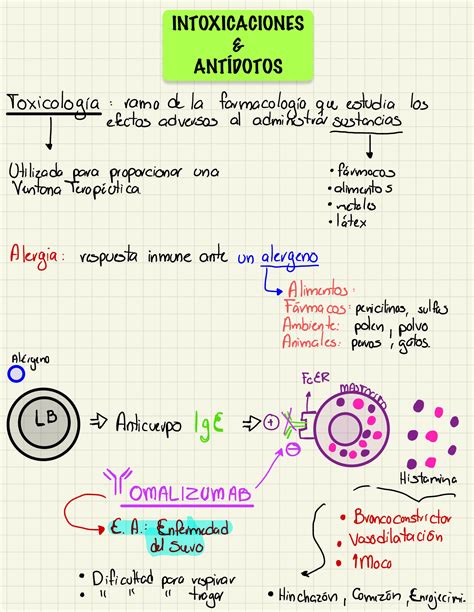 INTOXICACIONES
&
ANTÍDOTOS
Toxicología : ramo de la farmacología que estudia los
efectos adversos al administrar sustancias
Utilizado para proporcionar una
Ventana Terapéutica.
• fármacos
• alimentos
• metales
• látex
Alergia: respuesta inmune ante un alergeno
Alimentos:
Fármacos: penicilinas, sulfas
Ambiente: polen, polvo
Animales: perros, gatos.
Alérgeno
LB
⇒ Anticuerpo IgE ⇒ +
FcER
MASTOCITO
Histamina
OMALIZUMAB
E. A.: Enfermedad
del Suero
• Dificultad para respirar
• " " " tragar
• Broncoconstrictor
• Vasodilatación
• ↑Moco
• Hinchazón, Comezón, Enrojecimi.